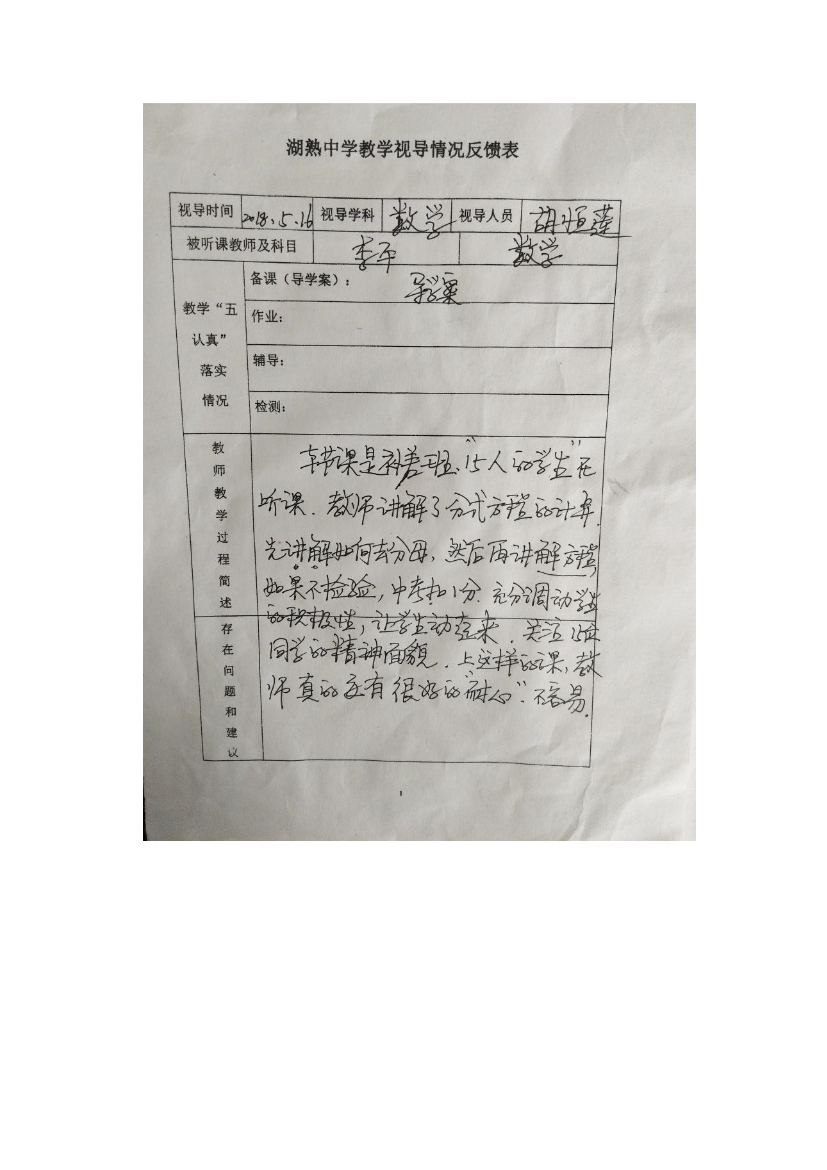 湖熟中学教学视导情况反馈表
视导时间 2018.5.16 视导学科 数学 视导人员 胡恒莲
被听课教师及科目 李平 数学
教学“五认真”落实情况
备课（导学案）： 导学案
作业：
辅导：
检测：
教师教学过程简述
本节课是补差班、“15人的学生”在
听课．教师讲解了分式方程的计算．
先讲解如何去分母，然后再讲解方程，
如果不检验，中考扣1分．充分调动学生
的积极性，让学生动起来．关注
同学的精神面貌．上这样的课，教
师真的要有很好的“耐心”．不容易．
存在问题和建议
1